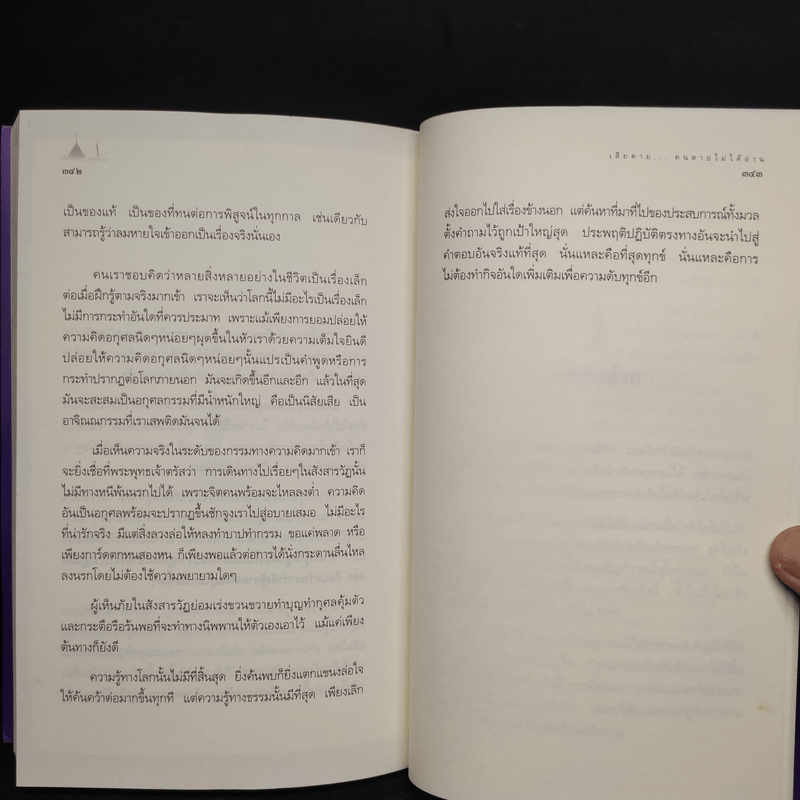 ๓๔๒
เป็นของแท้ เป็นของที่ทนต่อการพิสูจน์ในทุกกาล เช่นเดียวกับ
สามารถรู้ว่าลมหายใจเข้าออกเป็นเรื่องจริงนั่นเอง
คนเราชอบคิดว่าหลายสิ่งหลายอย่างในชีวิตเป็นเรื่องเล็ก
ต่อเมื่อฝึกรู้ตามจริงมากเข้า เราจะเห็นว่าโลกนี้ไม่มีอะไรเป็นเรื่องเล็ก
ไม่มีการกระทำอันใดที่ควรประมาท เพราะแม้เพียงการยอมปล่อยให้
ความคิดอกุศลนิดๆหน่อยๆผุดขึ้นในหัวเราด้วยความเต็มใจยินดี
ปล่อยให้ความคิดอกุศลนิดๆหน่อยๆนั้นแปรเป็นคำพูดหรือการ
กระทำปรากฏต่อโลกภายนอก มันจะเกิดขึ้นอีกและอีก แล้วในที่สุด
มันจะสะสมเป็นอกุศลกรรมที่มีน้ำหนักใหญ่ คือเป็นนิสัยเสีย เป็น
อาจิณณกรรมที่เราเสพติดมันจนได้
เมื่อเห็นความจริงในระดับของกรรมทางความคิดมากเข้า เราก็
จะยิ่งเชื่อที่พระพุทธเจ้าตรัสว่า การเดินทางไปเรื่อยๆในสังสารวัฏนั้น
ไม่มีทางหนีพ้นนรกไปได้ เพราะจิตคนพร้อมจะไหลลงต่ำ ความคิด
อันเป็นอกุศลพร้อมจะปรากฏขึ้นชักจูงเราไปสู่อบายเสมอ ไม่มีอะไร
ที่น่ารักจริง มีแต่สิ่งลวงล่อให้หลงทำบาปทำกรรม ขอแค่พลาด หรือ
เพียงการ์ดตกหนสองหน ก็เพียงพอแล้วต่อการได้นั่งกระดานลื่นไหล
ลงนรกโดยไม่ต้องใช้ความพยายามใดๆ
ผู้เห็นภัยในสังสารวัฏย่อมเร่งขวนขวายทำบุญทำกุศลคุ้มตัว
และกระตือรือร้นพอที่จะทำทางนิพพานให้ตัวเองเอาไว้ แม้แค่เพียง
ต้นทางก็ยังดี
ความรู้ทางโลกนั้นไม่มีที่สิ้นสุด ยิ่งค้นพบก็ยิ่งแตกแขนงล่อใจ
ให้ค้นคว้าต่อมากขึ้นทุกที แต่ความรู้ทางธรรมนั้นมีที่สุด เพียงเลิก
เสียดาย... คนตายไม่ได้อ่าน
๓๔๓
ส่งใจออกไปใส่เรื่องข้างนอก แต่ค้นหาที่มาที่ไปของประสบการณ์ทั้งมวล
ตั้งคำถามไว้ถูกเป้าใหญ่สุด ประพฤติปฏิบัติตรงทางอันจะนำไปสู่
คำตอบอันจริงแท้ที่สุด นั่นแหละคือที่สุดทุกข์ นั่นแหละคือการ
ไม่ต้องทำกิจอันใดเพิ่มเติมเพื่อความดับทุกข์อีก